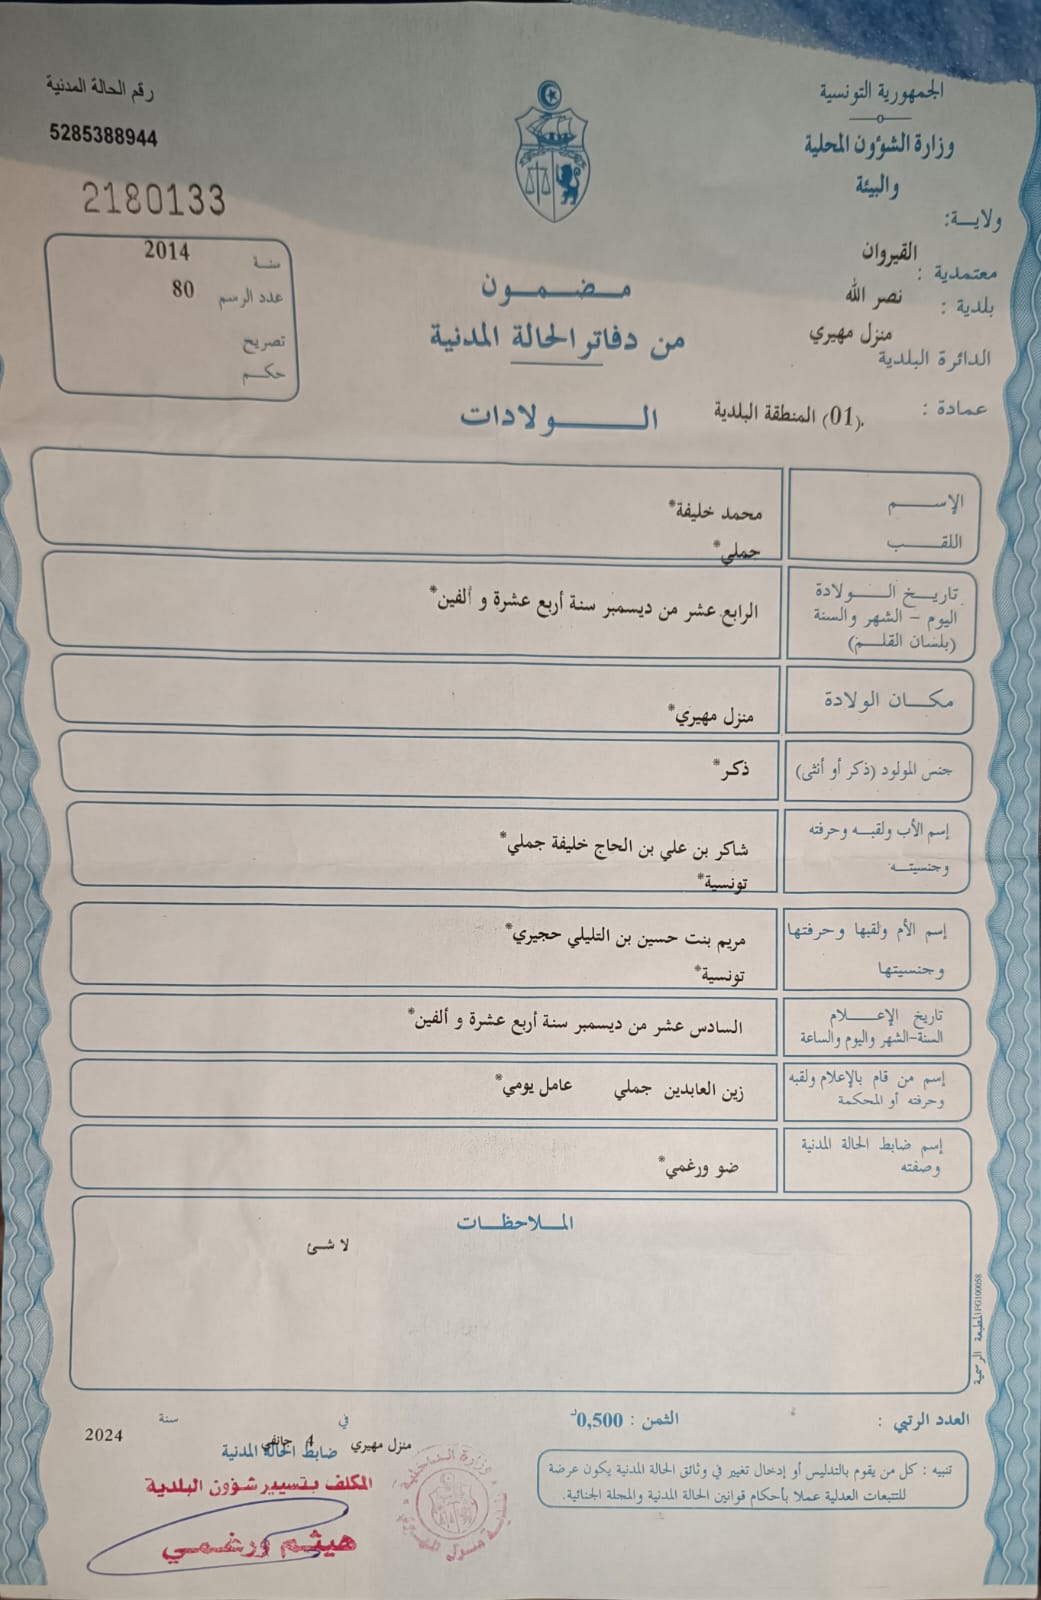 الجمهورية التونسية
وزارة الشؤون المحلية
والبيئة
رقم الحالة المدنية
5285388944
2180133
ولايـــة: القيروان
معتمدية : نصر الله
بلدية : منزل مهيري
الدائرة البلدية
عمادة : (01) المنطقة البلدية.
سنة 2014
عدد الرسم 80
تصريح
حكم
مضمون
من دفاتر الحالة المدنية
الولادات
الإسم محمد خليفة*
اللقب جملي*
تاريخ الولادة
اليوم - الشهر والسنة
(بلسان القلم)
الرابع عشر من ديسمبر سنة أربع عشرة و ألفين*
مكان الولادة منزل مهيري*
جنس المولود (ذكر أو أنثى) ذكر*
إسم الأب ولقبه وحرفته شاكر بن علي بن الحاج خليفة جملي*
وجنسيته تونسية*
إسم الأم ولقبها وحرفتها مريم بنت حسين بن التليلي حجيري*
وجنسيتها تونسية*
تاريخ الإعلام
السنة-الشهر واليوم والساعة
السادس عشر من ديسمبر سنة أربع عشرة و ألفين*
إسم من قام بالإعلام ولقبه
وحرفته أو المحكمة
زين العابدين جملي عامل يومي*
إسم ضابط الحالة المدنية
وصفته
ضو ورغمي*
الملاحظات
لا شئ
المطبعة الرسمية FG100058
العدد الرتبي :
الثمن : 0,500د
تنبيه : كل من يقوم بالتدليس أو إدخال تغيير في وثائق الحالة المدنية يكون عرضة
للتتبعات العدلية عملا بأحكام قوانين الحالة المدنية والمجلة الجنائية.
في سنة
منزل مهيري 4 جانفي 2024
ضابط الحالة المدنية
المكلف بتسيير شؤون البلدية
هيثم ورغمي